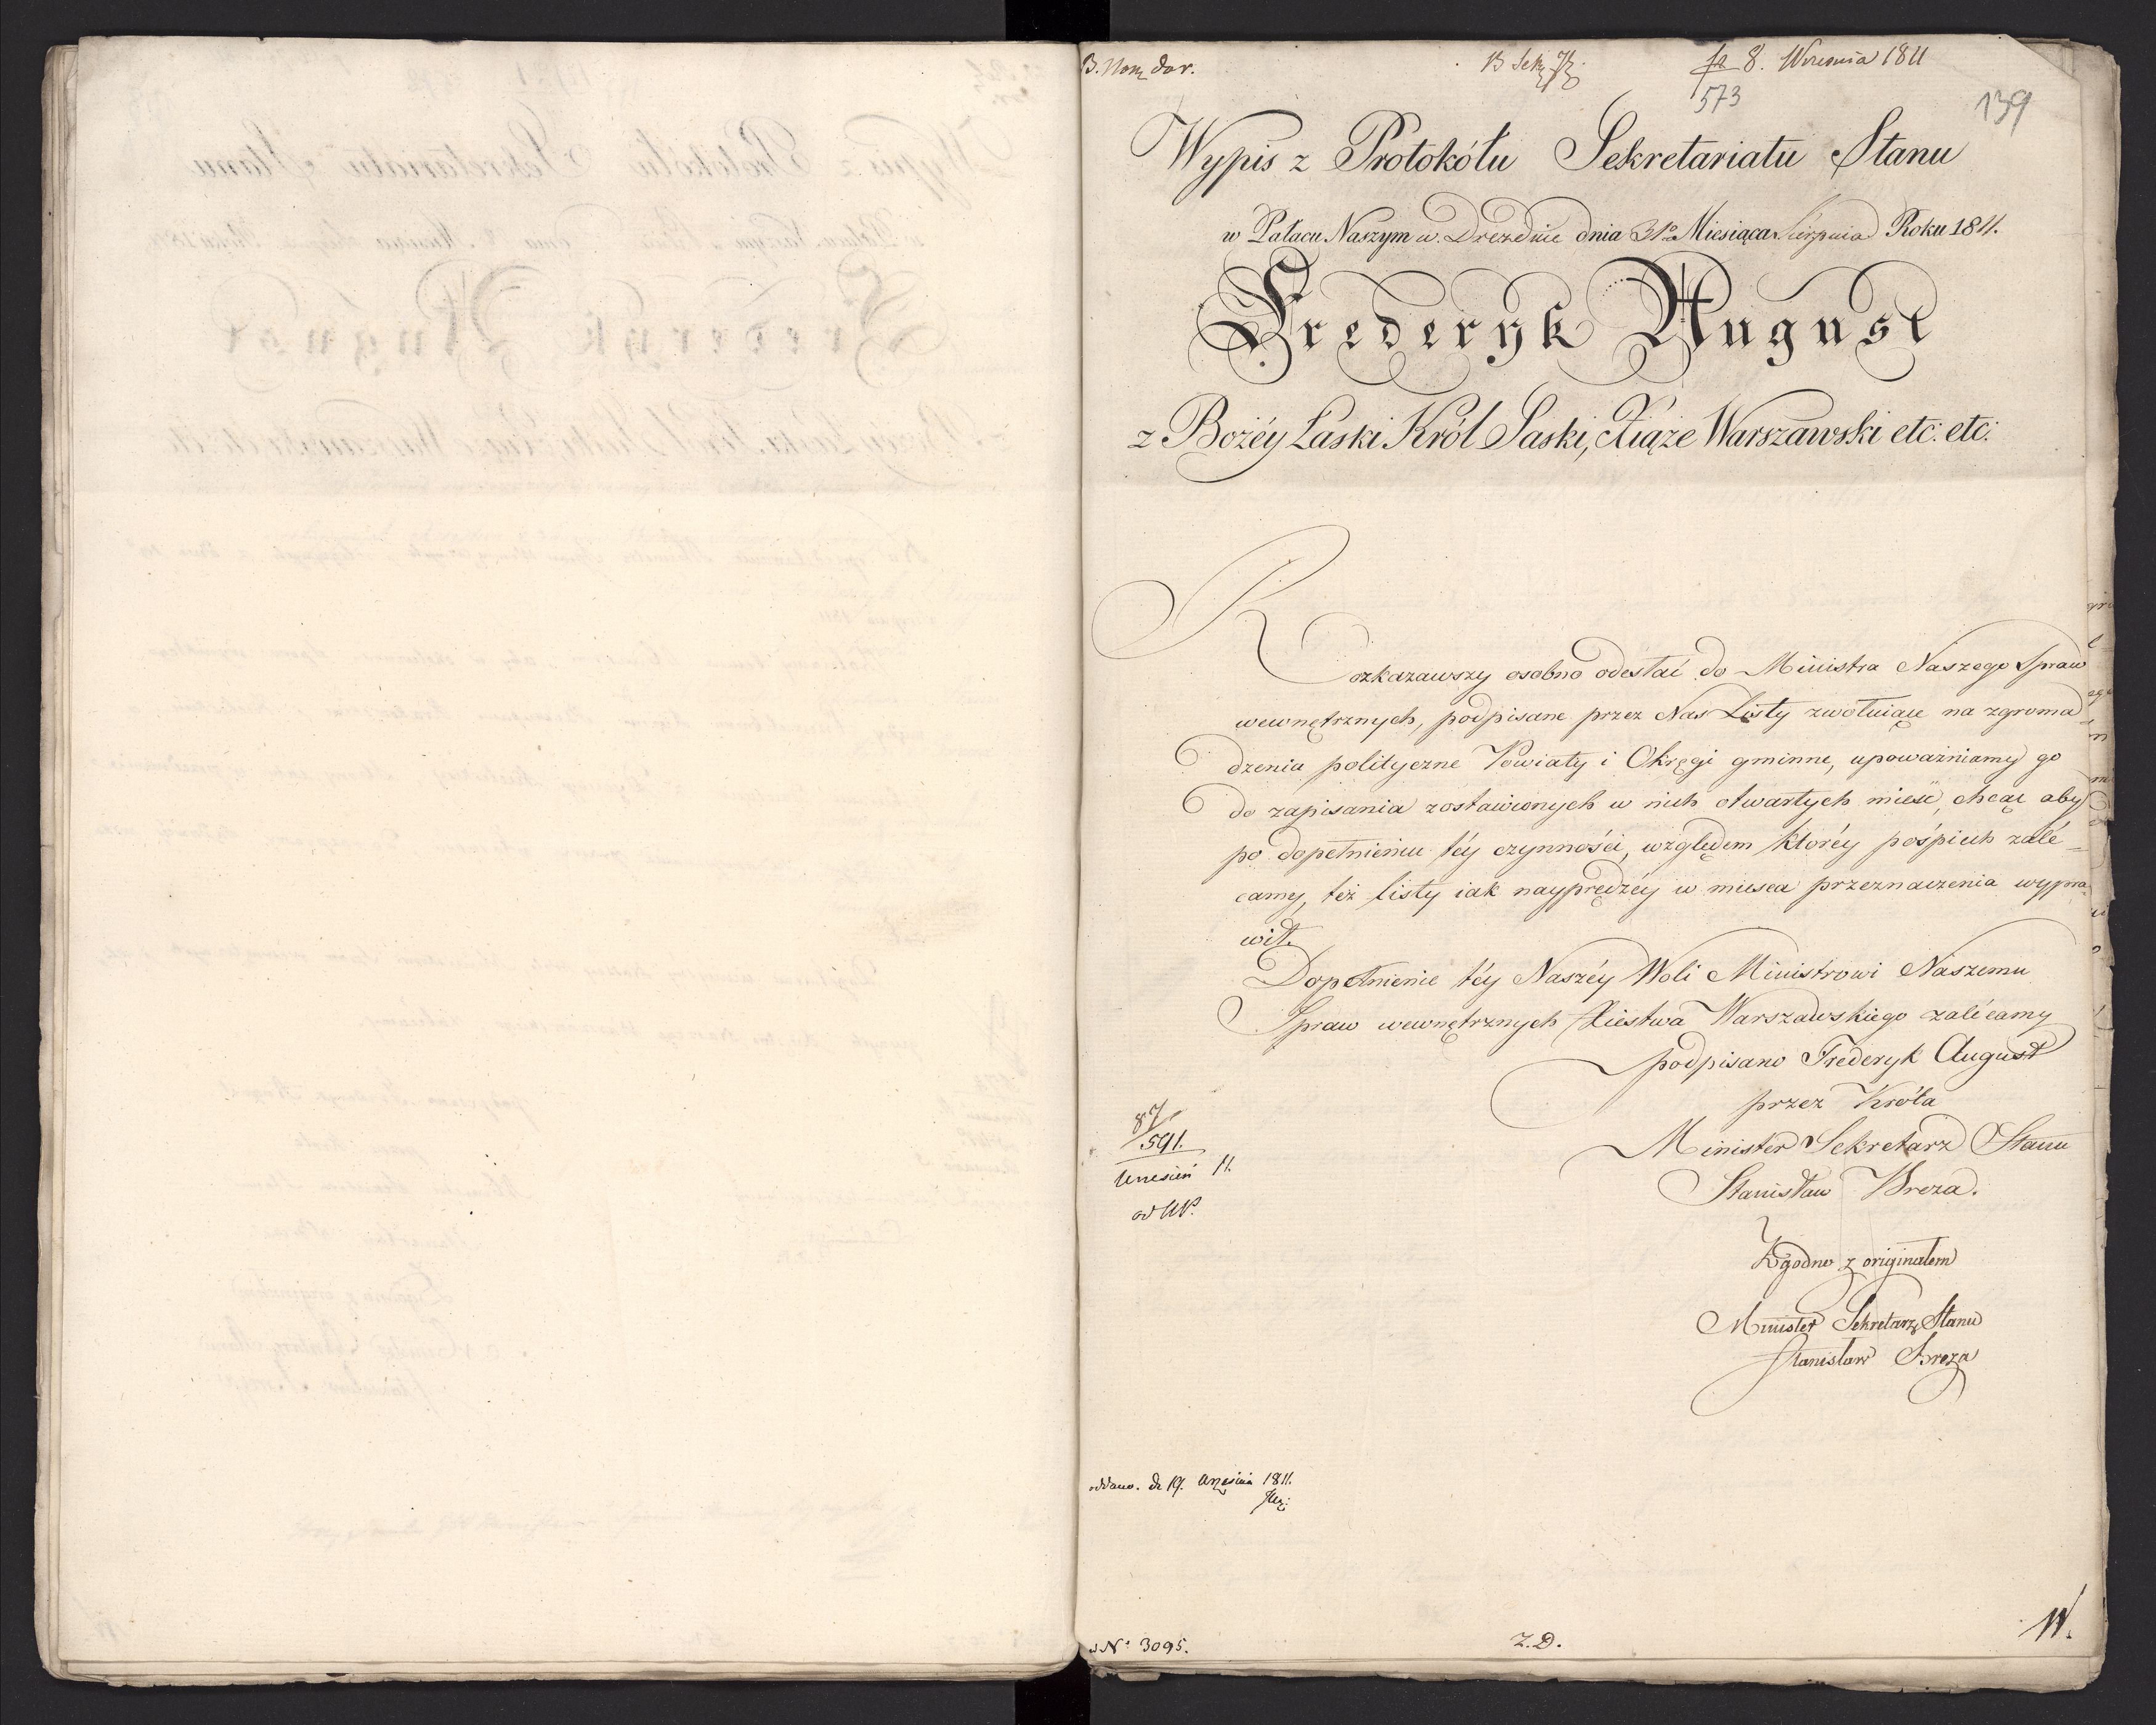 8. Września 1811
573
139
Wypis z Protokółu Sekretariatu Stanu
w Pałacu Naszym w Dreznie dnia 31º Miesiąca Sierpnia Roku 1811.
Frederyk August
z Bożéy Łaski Król Saski, Xiąże Warszawski etc: etc:
Rozkazawszy osobno odesłać do Ministra Naszego Spraw
wewnętrznych, podpisane przez Nas Listy zwołuiące na zgroma
dzenia polityczne Powiaty i Okręgi gminne, upoważniamy go
do zapisania zostawionych w nich otwartych mieść, chcąc aby
po dopełnieniu téy czynności, względem któréy pośpiech zalé=
camy, też listy iak nayprędzéy w miesca przeznaczenia wypra
wił.
Dopełnienie téy Naszéy Woli Ministrowi Naszemu
Spraw wewnętrznych Xięstwa Warszawskiego zalécamy
podpisano Frederyk August
przez Króla
Minister Sekretarz Stanu
Stanisław Breza.
87
591.
Wrzesień 11.
Zgodno z originałem
Minister Sekretarz Stanu
Stanisław Breza
oddano. d. 19. Września 1811.
Nº 3095.
Z.D.
W.